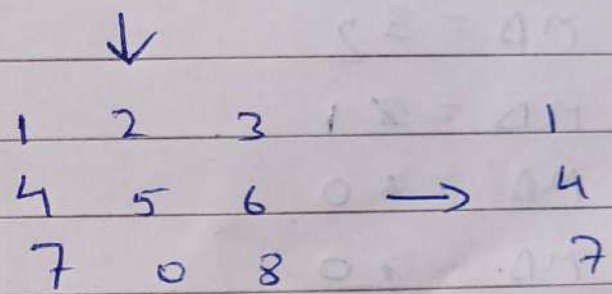 ↓
1 2 3 1
4 5 6 → 4
7 0 8 7